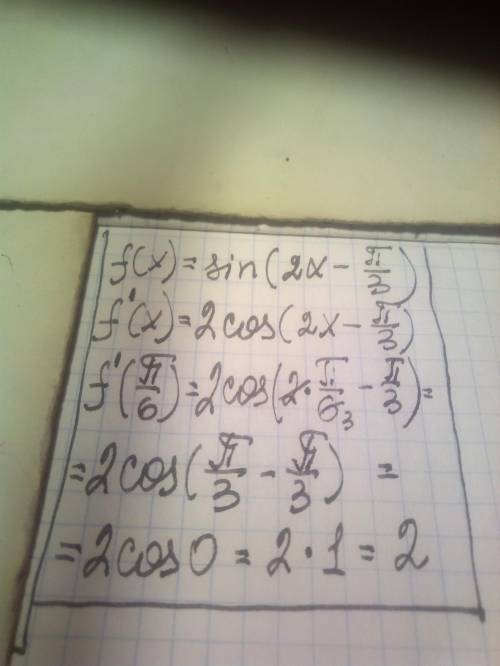 f(x) = sin(2x - π/3)
f'(x) = 2cos(2x - π/3)
f'(π/6) = 2cos(2·π/6₃ - π/3) =
= 2cos(π/3 - π/3) =
= 2cos0 = 2·1 = 2